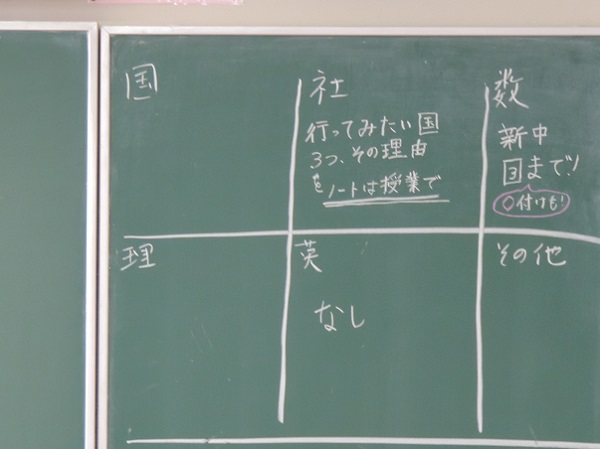 国
社
行ってみたい国
3つ、その理由
を ノートは授業で
数
新中
③まで!
○付けも!
理
英
なし
その他